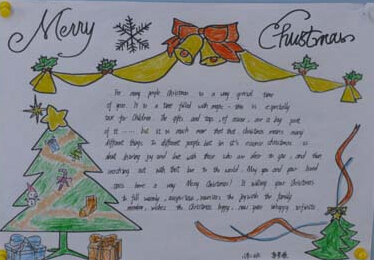 Merry Christmas
For many people, Christmas is a very special time
of year. It is a time filled with magic - this is especially
true for children. The gifts and toys, of course, are a big part
of it --- but it is much more than that christmas means many
different things to different people but in it's essence christmas is
about sharing joy and love with those who are dear to you, and then
reaching out with that love to the world. May you and your loved
ones have a very Merry Christmas! is wishing your Christmas
to fill warmly, the joy with the family
member, wishes the Christmas happy, new year